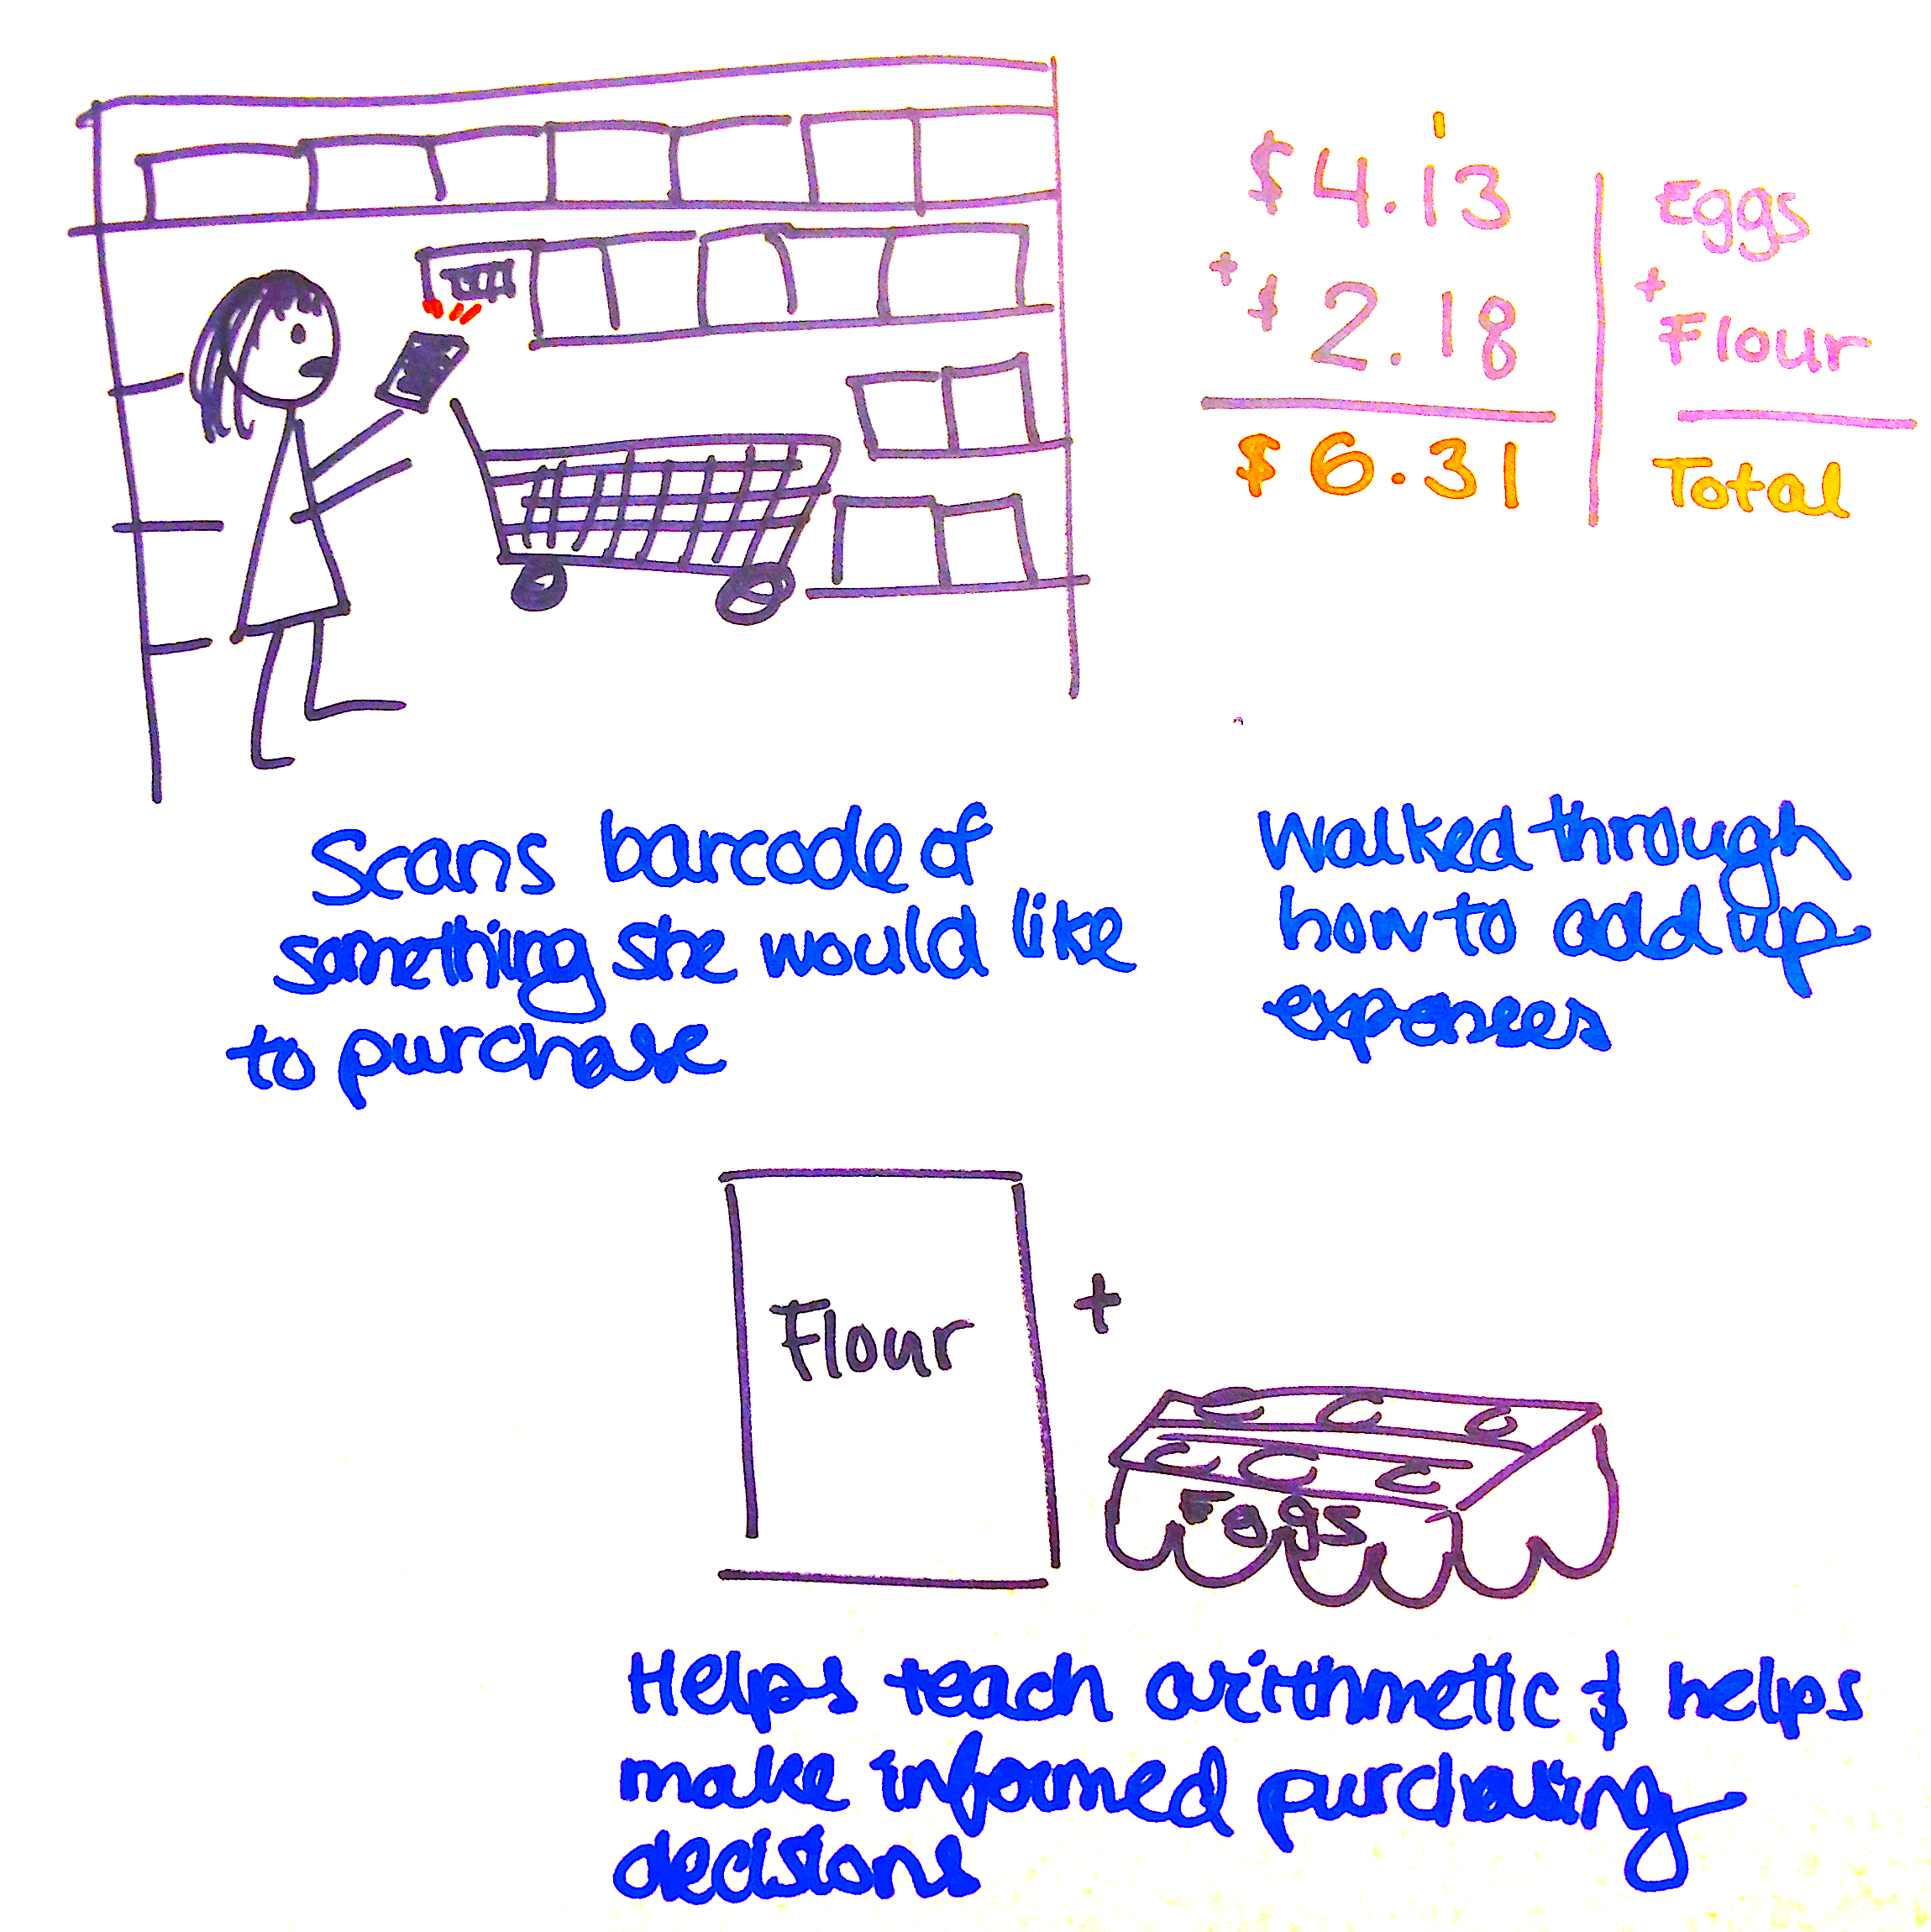 1
$4.13
+ $2.18
$6.31
Eggs
+
Flour
Total
Scans barcode of
something she would like
to purchase
Walked through
how to add up
expenses
Flour
+
Eggs
Helps teach arithmetic & helps
make informed purchasing
decisions